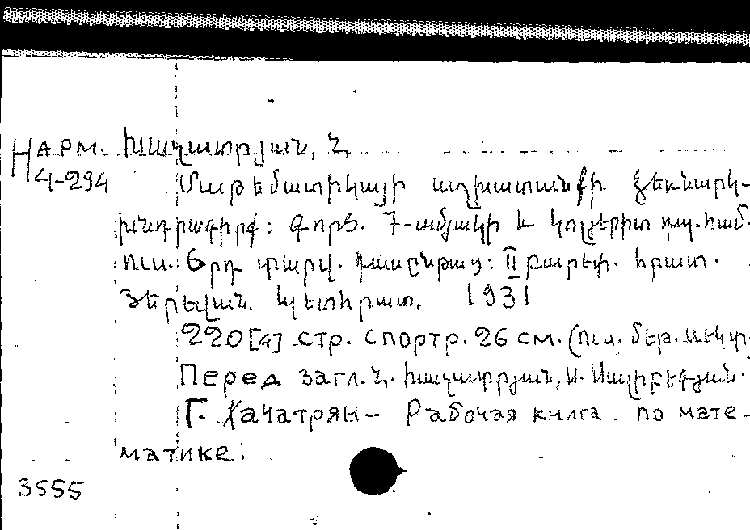 Н АРМ. Խաչատրյան, Հ.
4-294 Մաթեմատիկայի աշխատանքի ձեռնարկ-
խնդրագիրք: Գործ. 7-ամյակի և կոլերիտ դպ. համ.
ուս. 6րդ տարվ. դասընթաց: II բարեփ. հրատ.
Յերեվան. Պետհրատ. 1931
220 [4] стр. с портр. 26 см. (ուս. մեթ. սեկտ)
Перед загл. Հ. Խաչատրյան, Ա. Սալիբեգյան.
Г. Хачатрян- Рабочая книга по мате-
матике.
3555